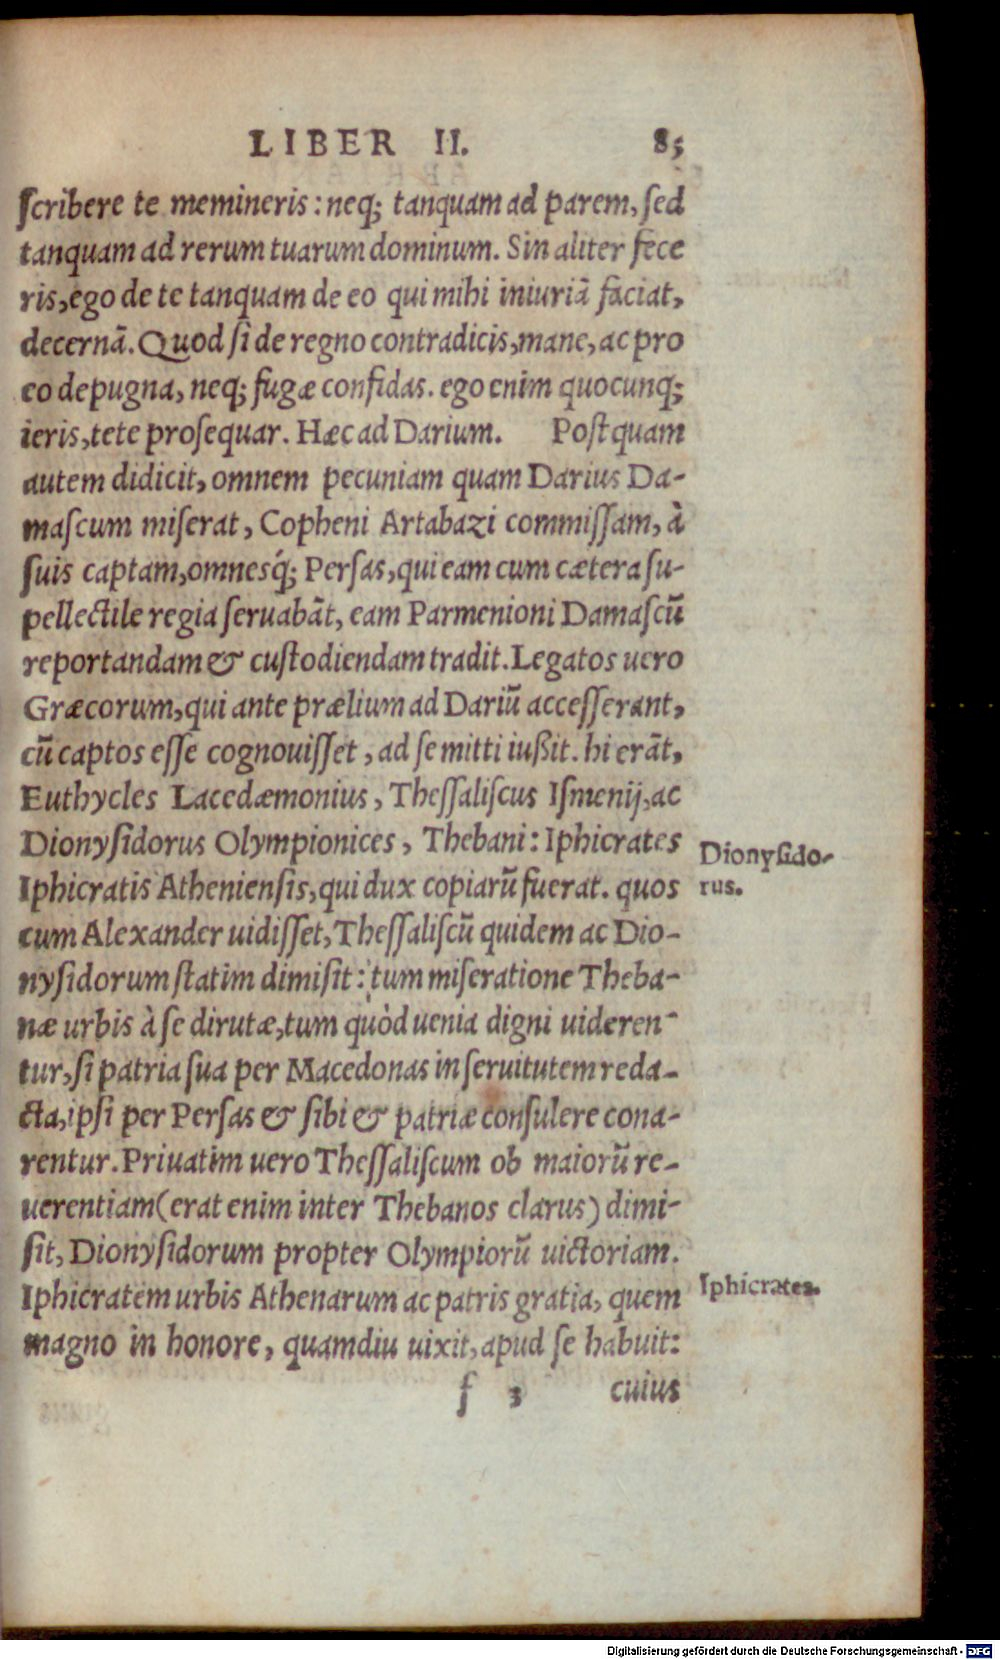 LIBER II. 85
ſcribere te memineris: neq; tanquam ad parem, ſed
tanquam ad rerum tuarum dominum. Sin aliter fece
ris, ego de te tanquam de eo qui mihi iniuriã faciat,
decernã. Quod ſi de regno contradicis, mane, ac pro
eo depugna, neq; fugæ confidas. ego enim quocunq;
ieris, te te proſequar. Hæc ad Darium. Poſtquam
autem didicit, omnem pecuniam quam Darius Da-
maſcum miſerat, Copheni Artabazi commiſſam, à
ſuis captam, omnesq́; Perſas, qui eam cum cætera ſu-
pellectile regia ſeruabãt, eam Parmenioni Damaſcũ
reportandam & cuſtodiendam tradit. Legatos uero
Græcorum, qui ante prælium ad Dariũ acceſſerant,
cũ captos eſſe cognouiſſet, ad ſe mitti iußit. hi erãt,
Euthycles Lacedæmonius, Theſſaliſcus Iſmenij, ac
Dionyſidorus Olympionices, Thebani: Iphicrates
Iphicratis Athenienſis, qui dux copiarũ fuerat. quos
cum Alexander uidiſſet, Theſſaliſcũ quidem ac Dio-
nyſidorum ſtatim dimiſit: tum miſeratione Theba-
næ urbis à ſe dirutæ, tum quòd uenia digni uideren-
tur, ſi patria ſua per Macedonas in ſeruitutem reda-
cta, ipſi per Perſas & ſibi & patriæ conſulere cona-
rentur. Priuatim uero Theſſaliſcum ob maiorũ re-
uerentiam (erat enim inter Thebanos clarus) dimi-
ſit, Dionyſidorum propter Olympiorũ uictoriam.
Iphicratem urbis Athenarum ac patris gratia, quem
magno in honore, quamdiu uixit, apud ſe habuit:
f 3 cuius
Dionyſido-
rus.
Iphicrates.
Digitalisierung gefördert durch die Deutsche Forschungsgemeinschaft - DFG